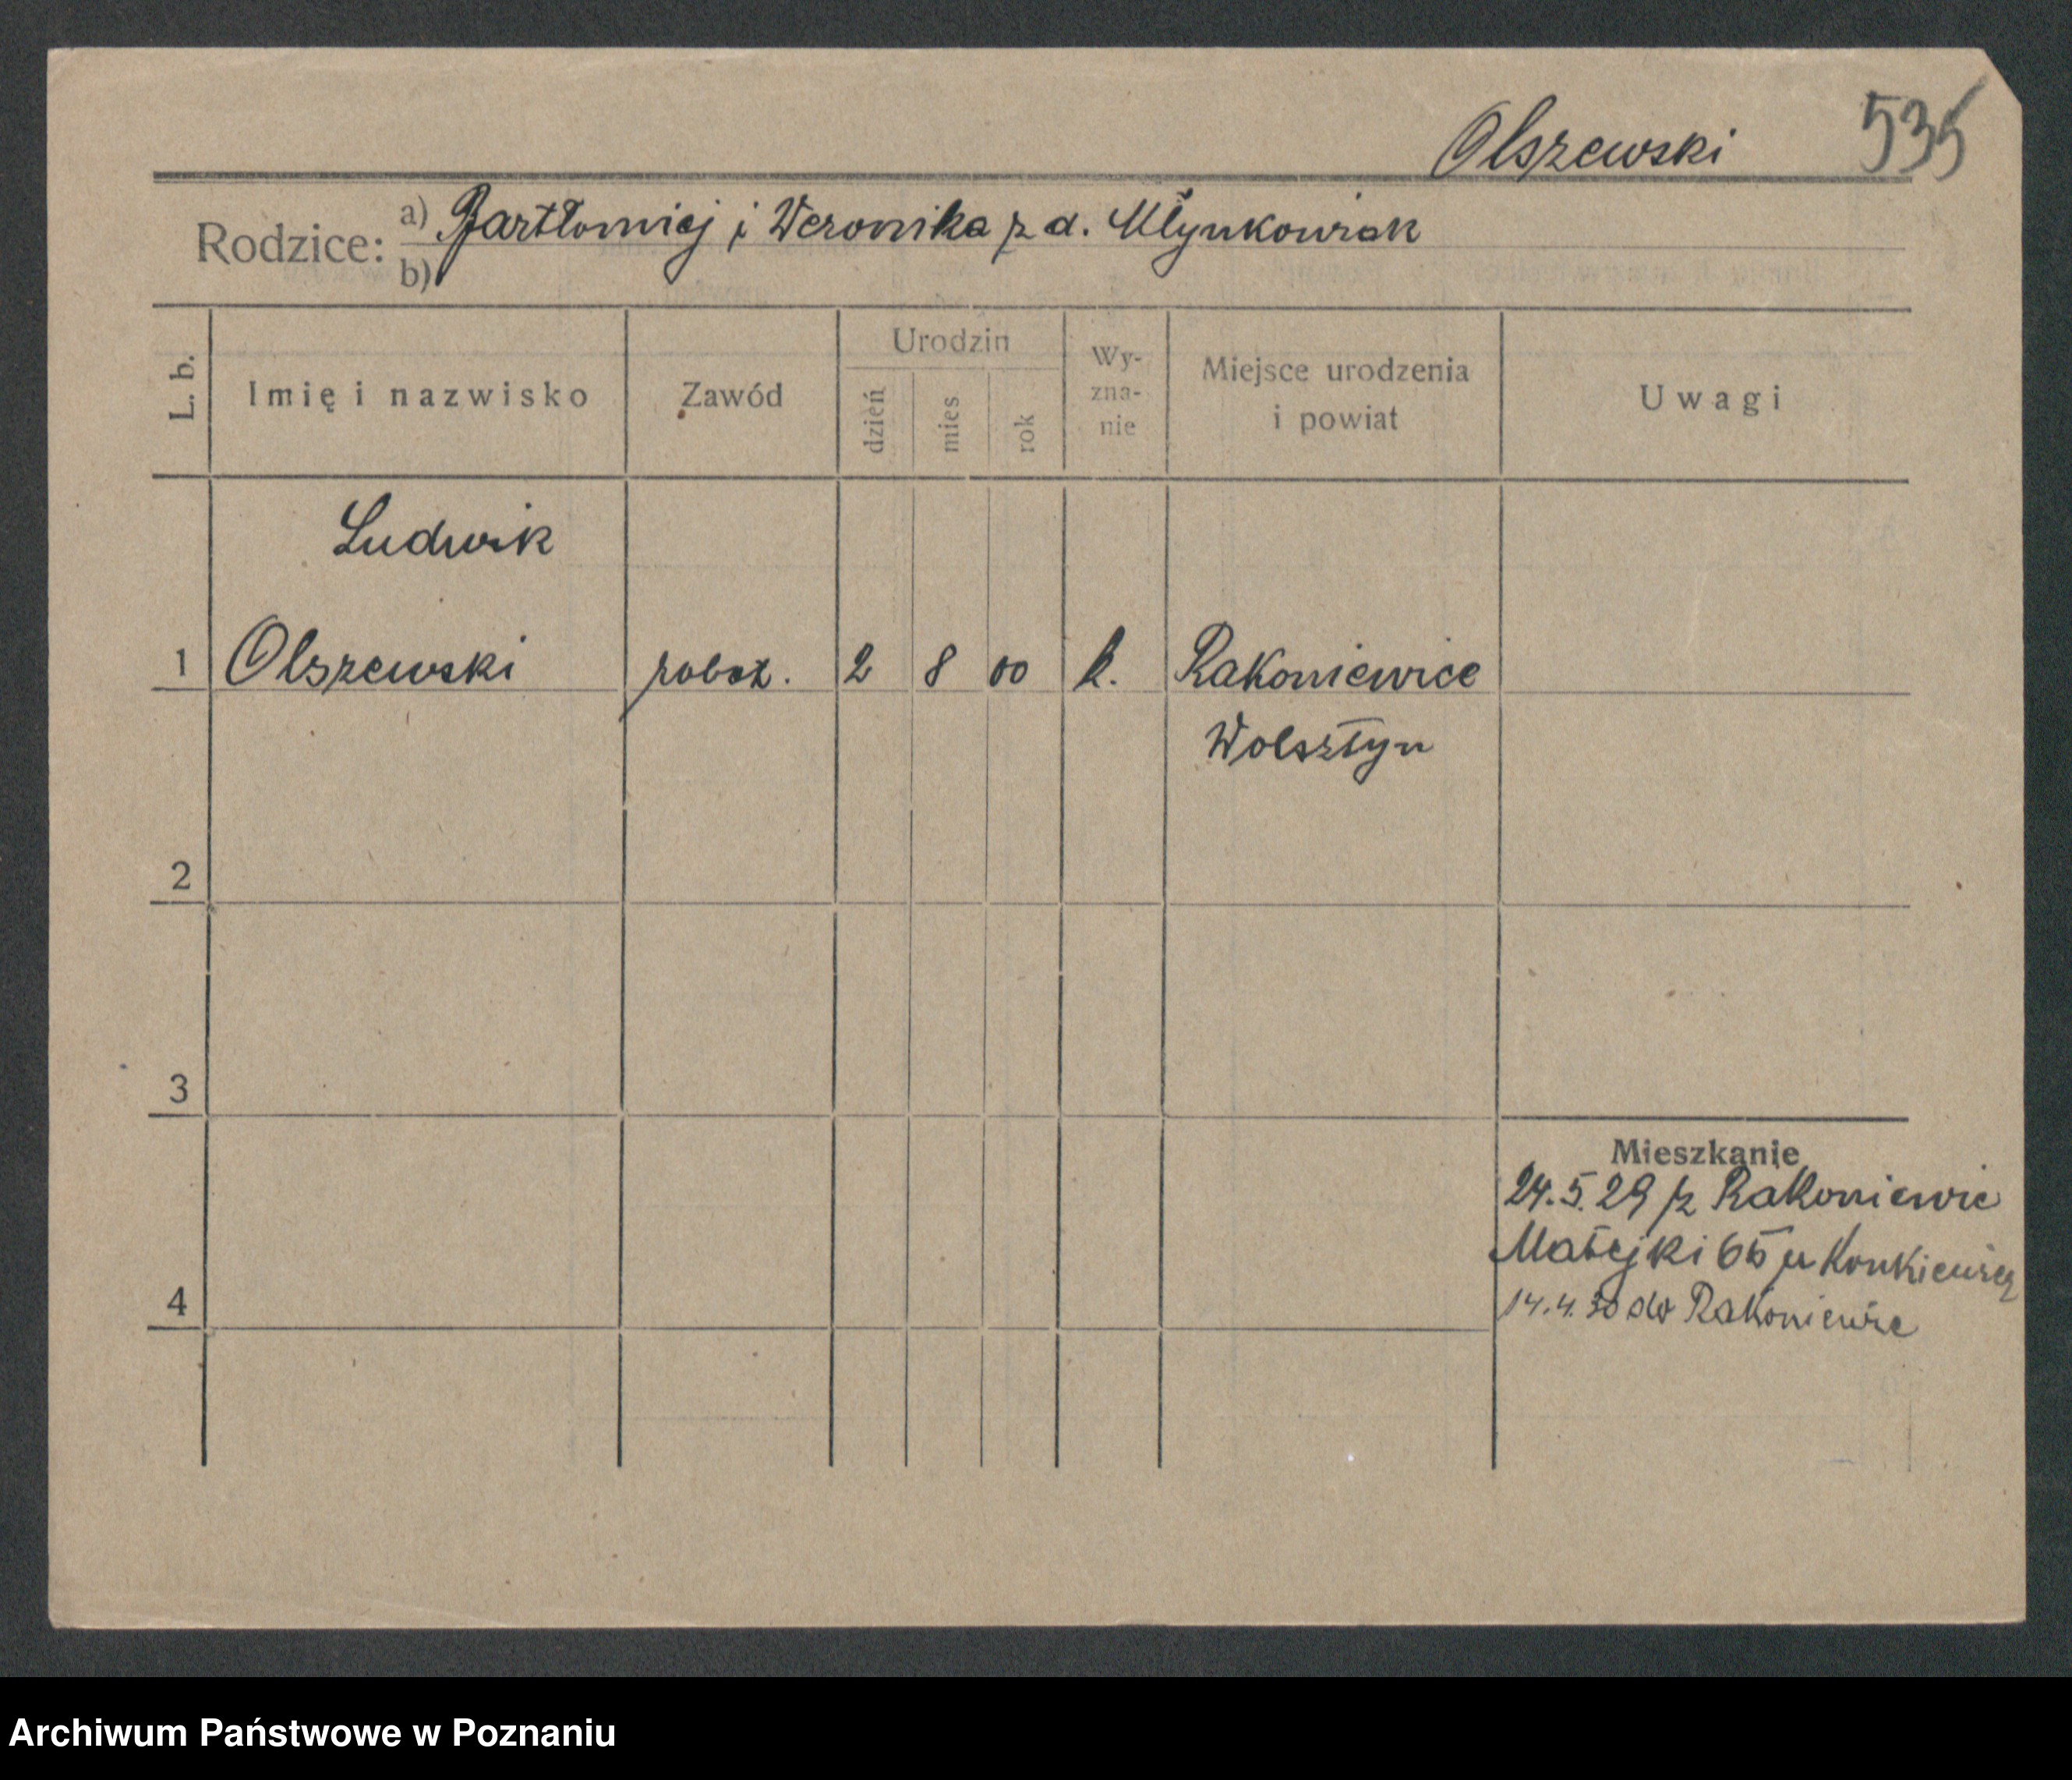 Olszewski 535
Rodzice: a) Bartłomiej i Weronika z d. Młynkowiak
b)
L. b.
Imię i nazwisko
Zawód
Urodzin
dzień
mies
rok
Wy-
zna-
nie
Miejsce urodzenia
i powiat
Uwagi
Ludwik
1 Olszewski robot. 2 8 00 k. Rakoniewice
Wolsztyn
2
3
Mieszkanie
24.5.29 z Rakoniewic
Matejki 65 u Konkiewicz
4
14.4.30 do Rakoniewic
Archiwum Państwowe w Poznaniu